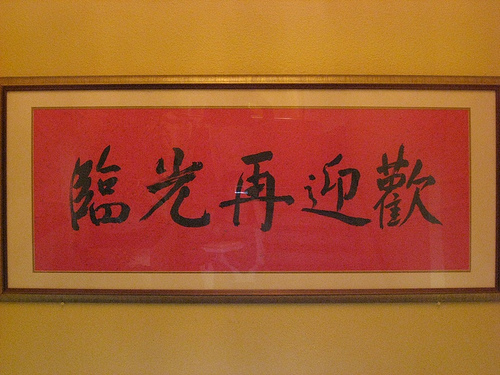 歡迎再光臨